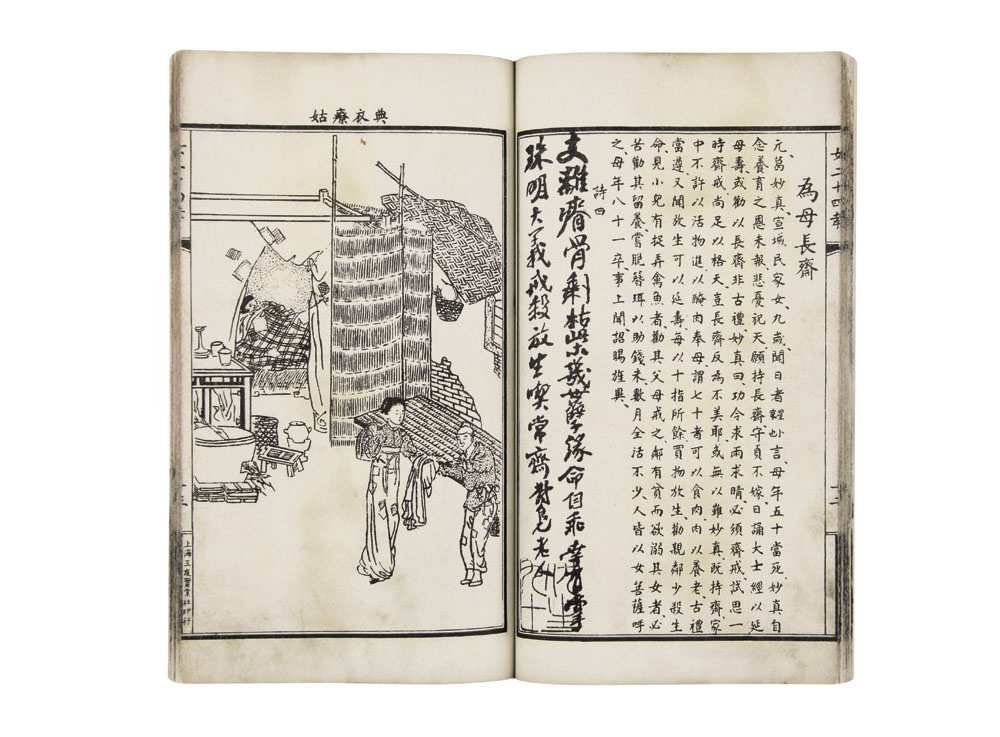 女二十四孝
十二
為母長齋
元、葛妙真、宣城民家女、九歲聞日者言、母年五十當死、妙真自
念養育之恩未報、悲憂祝天、願持長齋、守貞不嫁、日誦大士經以延
母壽、或勸以長齋非古禮、妙真曰、功令求雨求晴、必須齋戒、試思一
時齋戒、尚足以格天、豈長齋反為不美耶、或無以難、妙真既持齋、家
中不許以活物進、以醃肉奉母、謂七十者可以食肉、肉以養老、古禮
當遵、又聞放生可以延壽、每以十指所餘、買物放生、勸親鄰少殺生
命、見小兒有捉弄禽魚者、勸其父母戒之、鄰有貧而欲溺其女者、必
苦勸其留養、嘗脫簪珥以助錢米、數月全活不少、人皆以女菩薩呼
之、母年八十一卒、事上聞、詔賜旌典、
詩曰
支離瘠骨剩枯柴幾世孽緣命自乖幸有掌
珠明大義戒殺放生喫常齋 老人
典衣療姑
十三
上海三友實業社印行